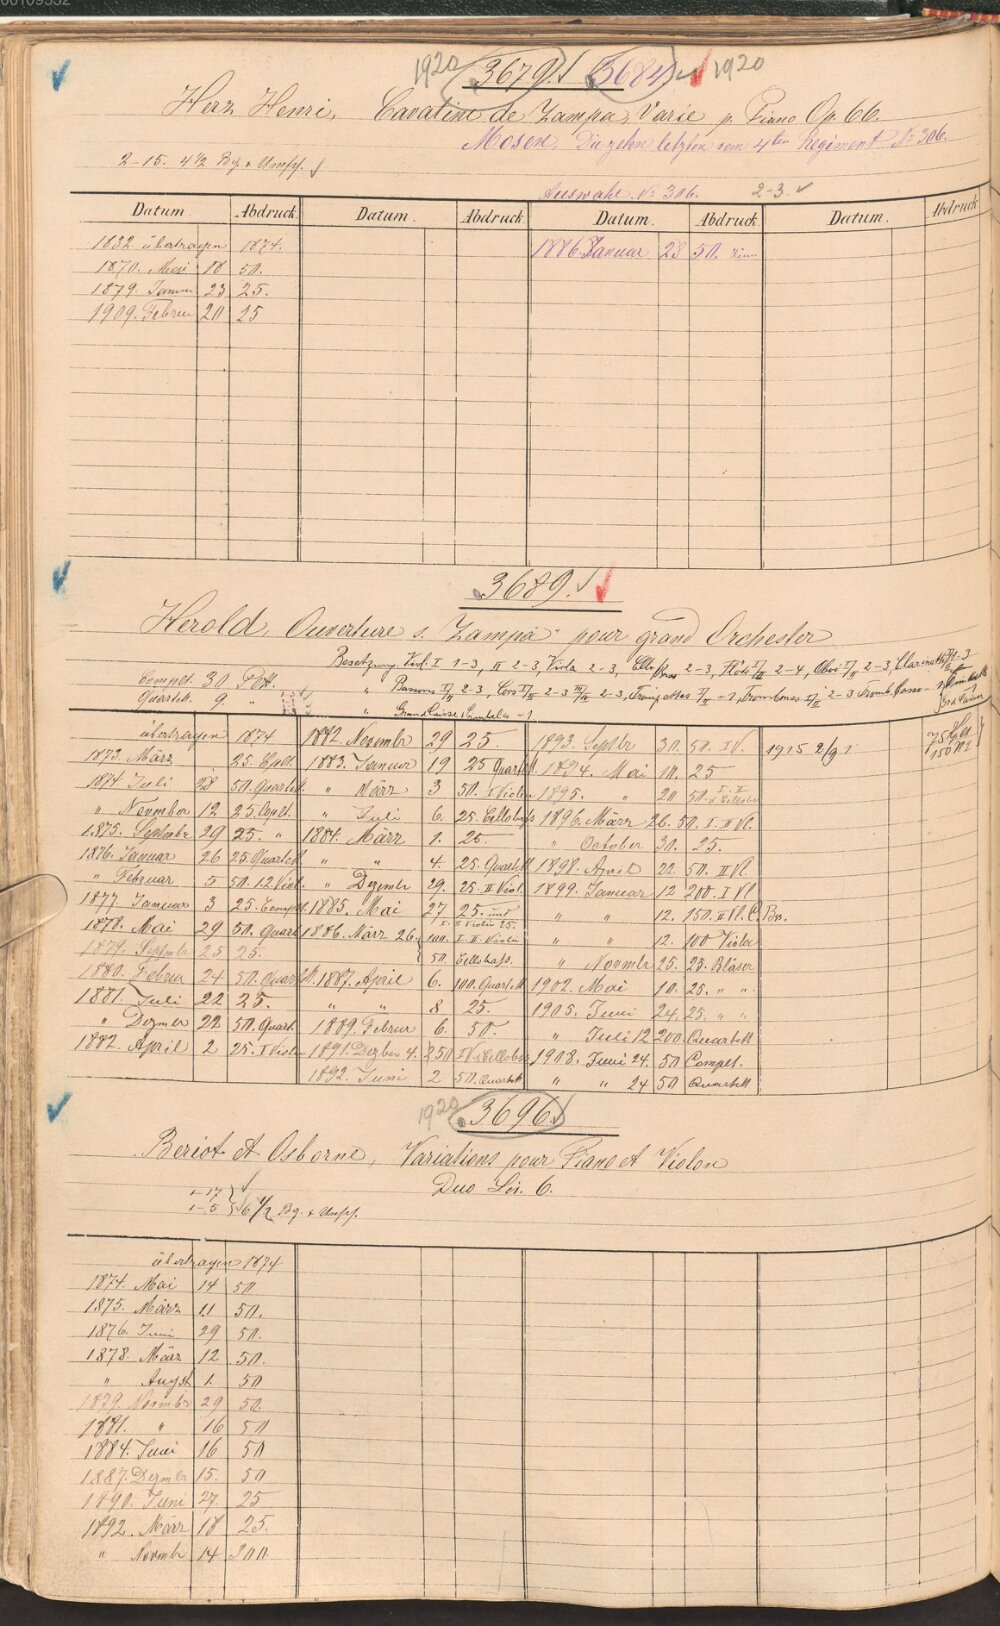 1920 3679. 3684 1920
Herz Henri, Cavatine de Zampa, Varie p. Piano Op. 66.
Mosen, Die zehn letzten vom 4ten Regiment No 306.
2-15. 4 1/2 Bg. + Umschl.
Auswahl No 306. 2-3.
Datum. Abdruck Datum. Abdruck Datum. Abdruck Datum. Abdruck
1832 übertragen 1874. 1886. Januar 28 50. Zinn
1870. Mai 18 50.
1879. Januar 23 25.
1909. Februar 20 25
3689.
Herold, Ouverture s. Zampa pour grand Orchester
Besetzung Viol. I 1-3, II 2-3, Viola 2-3, Cello Bass 2-3, Flöte I/II 2-4, Oboi I/II 2-3, Clarinett I/II 2-3
complet. 30 Pltt. " Bassons I/II 2-3, Cors I/II 2-3 III/IV 2-3, Trompettes I/II -1, Trombones I/II 2-3 Tromb. Basso -1
Quartett. 9 "
" Grand Caisse, Cimbales -1
übertragen 1874 1882 Novembr 29 25. 1893. Septbr 30. 50. IV. 1925 2/9 1
1873. März 25. Cplt. 1883. Januar 19 25 Quartett 1894. Mai 10. 25
1874. Juli 28 50. Quartett " März 3 50. I Violin 1895. " 20 50. I. II
" November 12 25. Cplt. " Juli 6. 25. Cello Bass 1896. März 26. 50. I. II Vl.
1875. Septmbr 29 25. " 1884. März 1. 25. " October 30. 25.
1876. Januar 26 25. Quartett " " 4. 25. Quartett 1898. April 22 50. II Vl.
" Februar 5 50. 1.2 Viol. " Dezmbr 29. 25. II Viol. 1899. Januar 12 200. I Vl.
1877. Januar 3 25. Complt. 1885. Mai 27 25. und " " 12. 150. II Vl. C. Bss.
I. II Violin 25.
1878. Mai 29 50. Quart 1886. März 26. 100. I. II. Violin " " 12. 100 Viola
1879. Septmbr 25 25. 50. Cello Bass. " Novmbr 25. 25. Bläser
1880. Februar 24 50. Quartett 1887. April 6. 100. Quartett 1902. Mai 10. 25. " "
1881. Juli 22 25. " " 8 25. 1905. Juni 24. 25. " "
" Dezmber 22. 50. Quart. 1889. Februar 6. 50. " Juli 12 200. Quartett
1882. April 2 25. I Violin 1891. Dezber 4. 250 1908. Juni 24. 50 Complt.
1892. Juni 2 50. Quartett " " 24 50 Quartett
1920 3696.
Beriot et Osborne, Variations pour Piano et Violon
Duo Liv. 6.
1-17
1-5 } 6 1/2 Bg. + Umschl.
übertragen 1874
1874. Mai 14 50
1875. März 11 50.
1876. Juni 29 50.
1878. März 12 50.
" August 1. 50
1879. Novembr 29 50.
1881. " 16 50
1884. Juni 16 50
1887. Dezmbr 15. 50
1890. Juni 27. 25
1892. März 18 25.
" Novmbr 14 300.